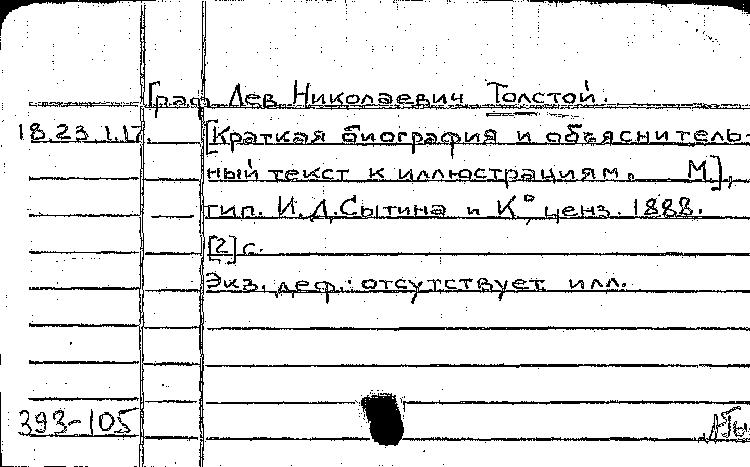 Граф Лев Николаевич Толстой.
18.23.1.17. [Краткая биография и объяснитель-
ный текст к иллюстрациям. М.],
тип. И.Д.Сытина и К°, ценз. 1888.
[2] с.
Экз. деф.: отсутствует илл.
393-105